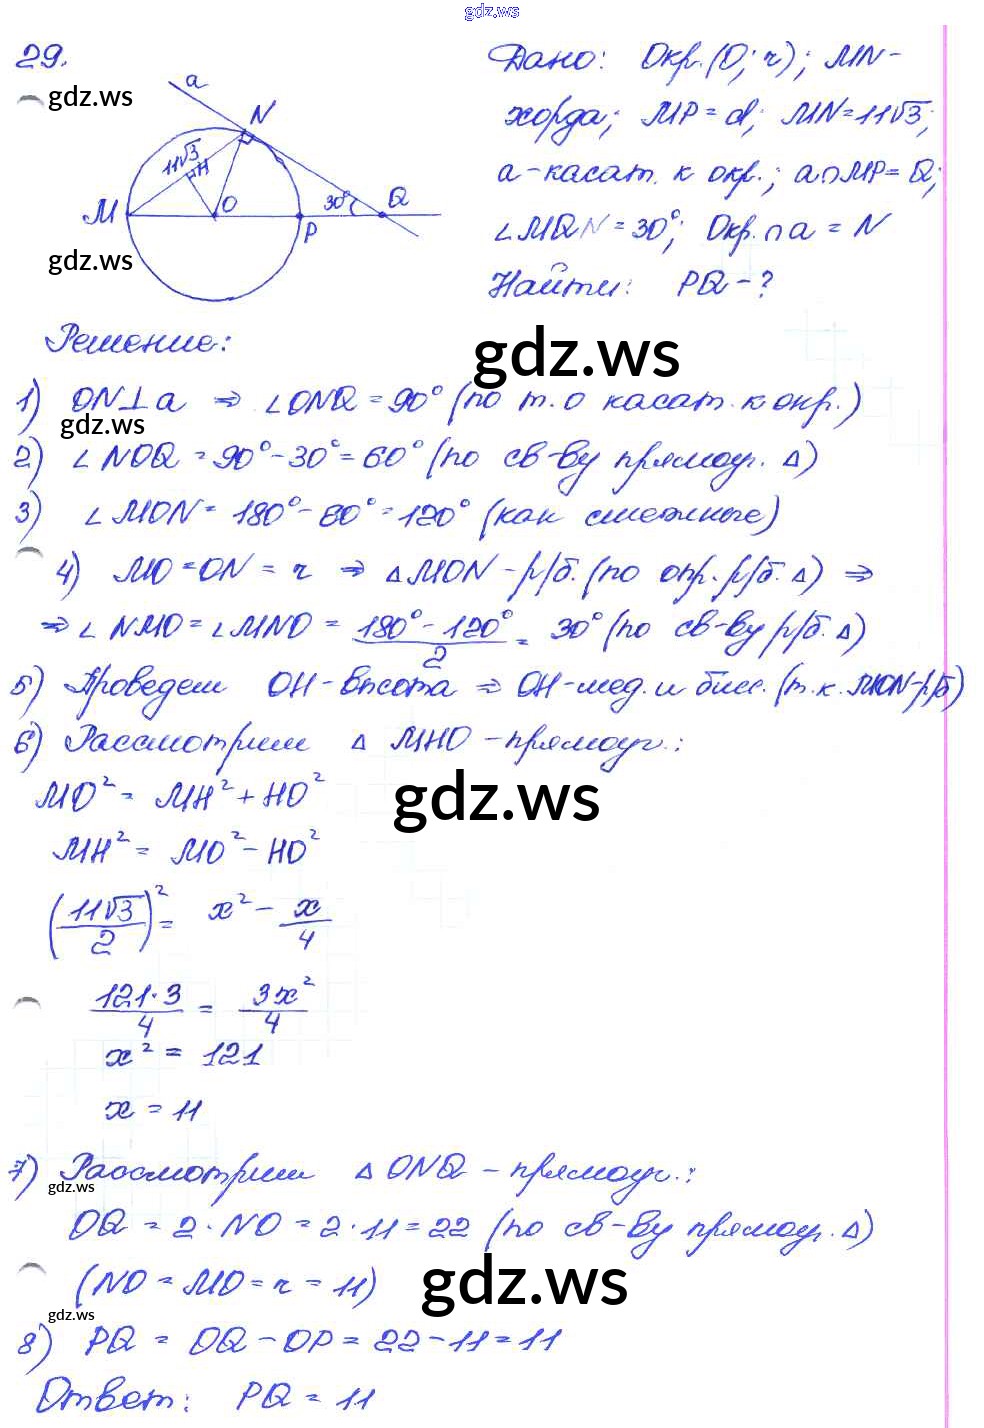 gdz.ws
29.
gdz.ws
a
N
11√3
H
M
O
30°
Q
P
gdz.ws
Дано: Окр.(O; r); MN-
хорда; MP = d; MN=11√3;
a-касат. к окр.; a∩MP= Q;
∠MQN = 30°; Окр.∩a = N
Найти: PQ - ?
Решение:
gdz.ws
1) ON⊥a ⇒ ∠ONQ = 90° (по т. о касат. к окр.)
gdz.ws
2) ∠NOQ = 90° - 30° = 60° (по св-ву прямоуг. Δ)
3) ∠MON = 180° - 60° = 120° (как смежные)
4) MO = ON = r ⇒ ΔMON - р/б. (по опр. р/б. Δ) ⇒
⇒ ∠NMO = ∠MNO = (180° - 120°)/2 = 30° (по св-ву р/б. Δ)
5) Проведем OH-высота ⇒ OH-мед. и бисс. (т.к. MON-р/б)
6) Рассмотрим Δ MHO - прямоуг.:
MO² = MH² + HO²
gdz.ws
MH² = MO² - HO²
(11√3/2)² = x² - x/4
121·3/4 = 3x²/4
x² = 121
x = 11
7) Рассмотрим Δ ONQ - прямоуг.:
gdz.ws
OQ = 2·NO = 2·11 = 22 (по св-ву прямоуг. Δ)
(NO = MO = r = 11)
gdz.ws
gdz.ws
8) PQ = OQ - OP = 22 - 11 = 11
Ответ: PQ = 11